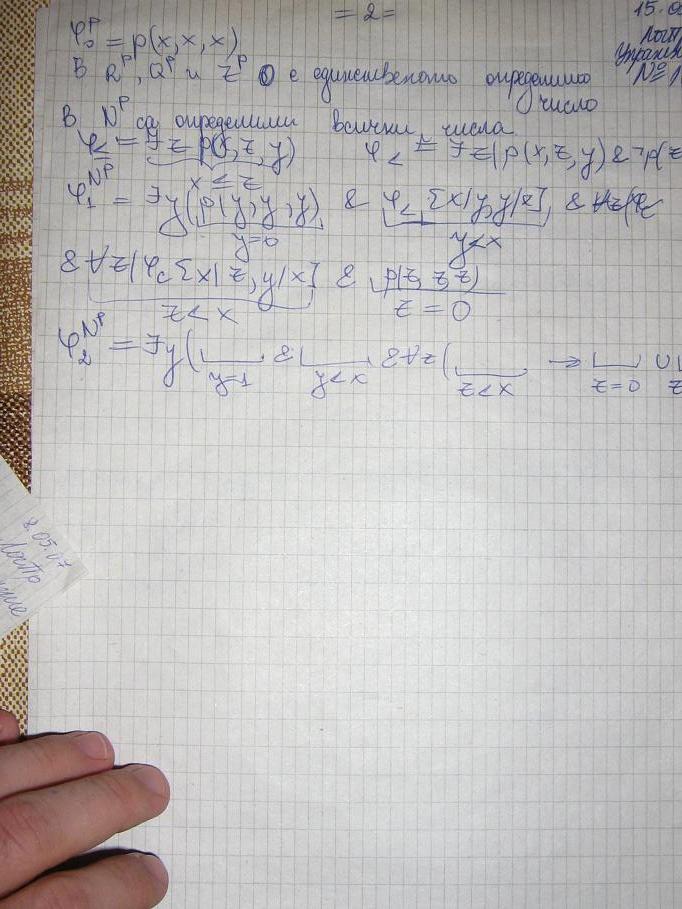 = 2 =
15.0
ЛогПр
Упражн
№ 1
φ₀ᴾ = p(x, x, x)
В Rᴾ, Qᴾ и Zᴾ 0 е единственото определимо
число
В Nᴾ са определими всички числа
φ≤ = ∃z p(x, z, y) φ< = ∃z(p(x, z, y) & ¬p(z
x ≤ z
φ₁ᴺᴾ = ∃y(p(y, y, y) & φ<[x/y, y/x] &
y=0 y<x
& ∀z(φ<[x/z, y/x] & p(z, z, z)
z < x z = 0
φ₂ᴺᴾ = ∃y( & & ∀z( →
y=1 y<x z<x z=0 z
8.05.07
ЛогПр